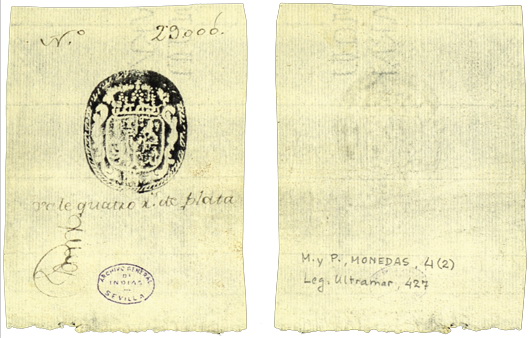 N.º 29006.
vale quatro r.s de plata
ARCHIVO GENERAL
DE
INDIAS
SEVILLA
M. y P., MONEDAS, 4(2)
Leg. Ultramar, 427